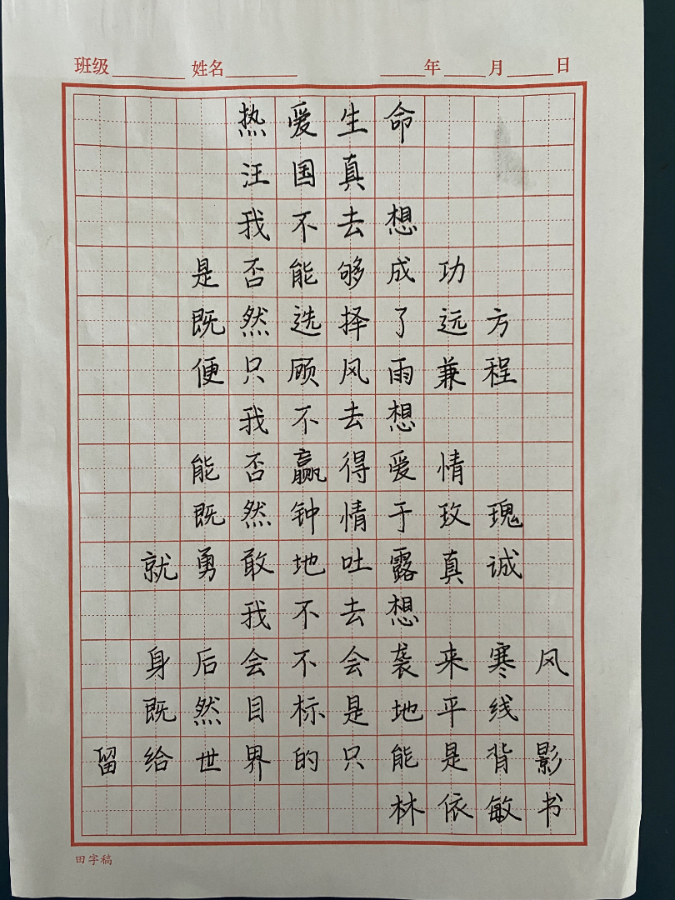 班级 姓名 年 月 日
热爱生命
汪国真
我不去想
是否能够成功
既然选择了远方
便只顾风雨兼程
我不去想
能否赢得爱情
既然钟情于玫瑰
就勇敢地吐露真诚
我不去想
身后会不会袭来寒风
既然目标是地平线
留给世界的只能是背影
林依敏书
田字稿